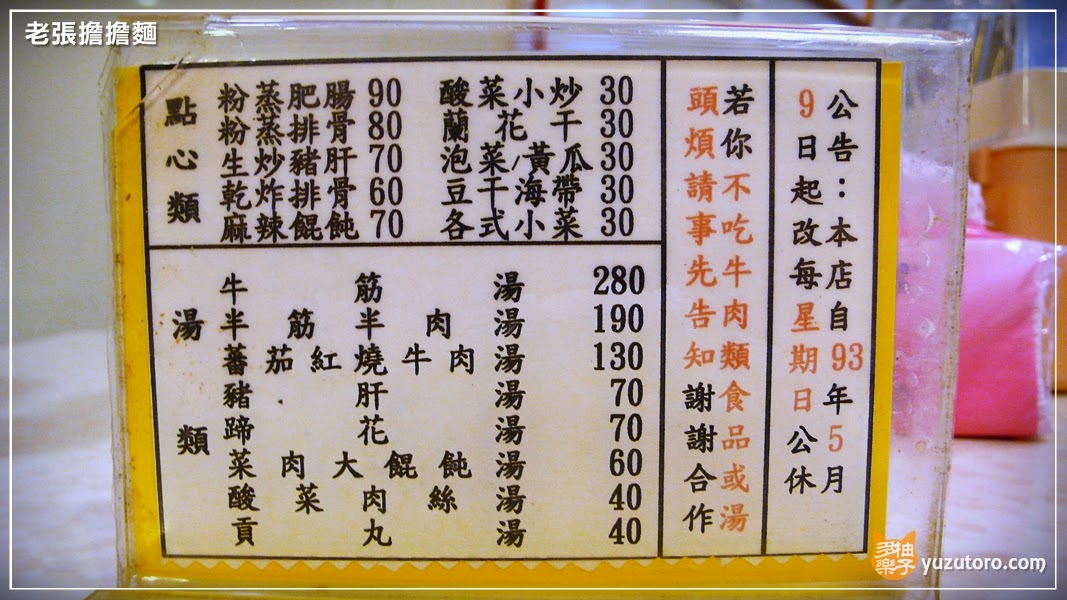 老張擔擔麵
點心類
粉蒸肥腸 90
粉蒸排骨 80
生炒豬肝 70
乾炸排骨 60
麻辣餛飩 70
酸菜小炒 30
蘭花干 30
泡菜/黃瓜 30
豆干海帶 30
各式小菜 30
湯類
牛筋湯 280
半筋半肉湯 190
蕃茄紅燒牛肉湯 130
豬肝湯 70
蹄花湯 70
菜肉大餛飩湯 60
酸菜肉絲湯 40
貢丸湯 40
公告：本店自93年5月
9日起改每星期日公休
若你不吃牛肉類食品或湯
頭煩請事先告知謝謝合作
柚子多樂
yuzutoro.com